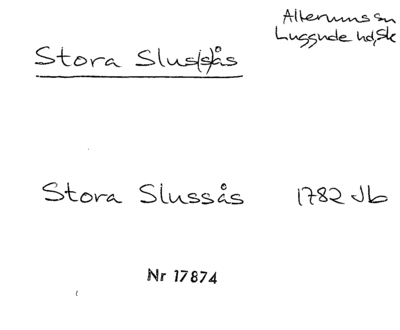 Allerums sn
Luggude hd, Sk
Stora Slus(s)ås
Stora Slussås 1782 Jb
Nr 17874